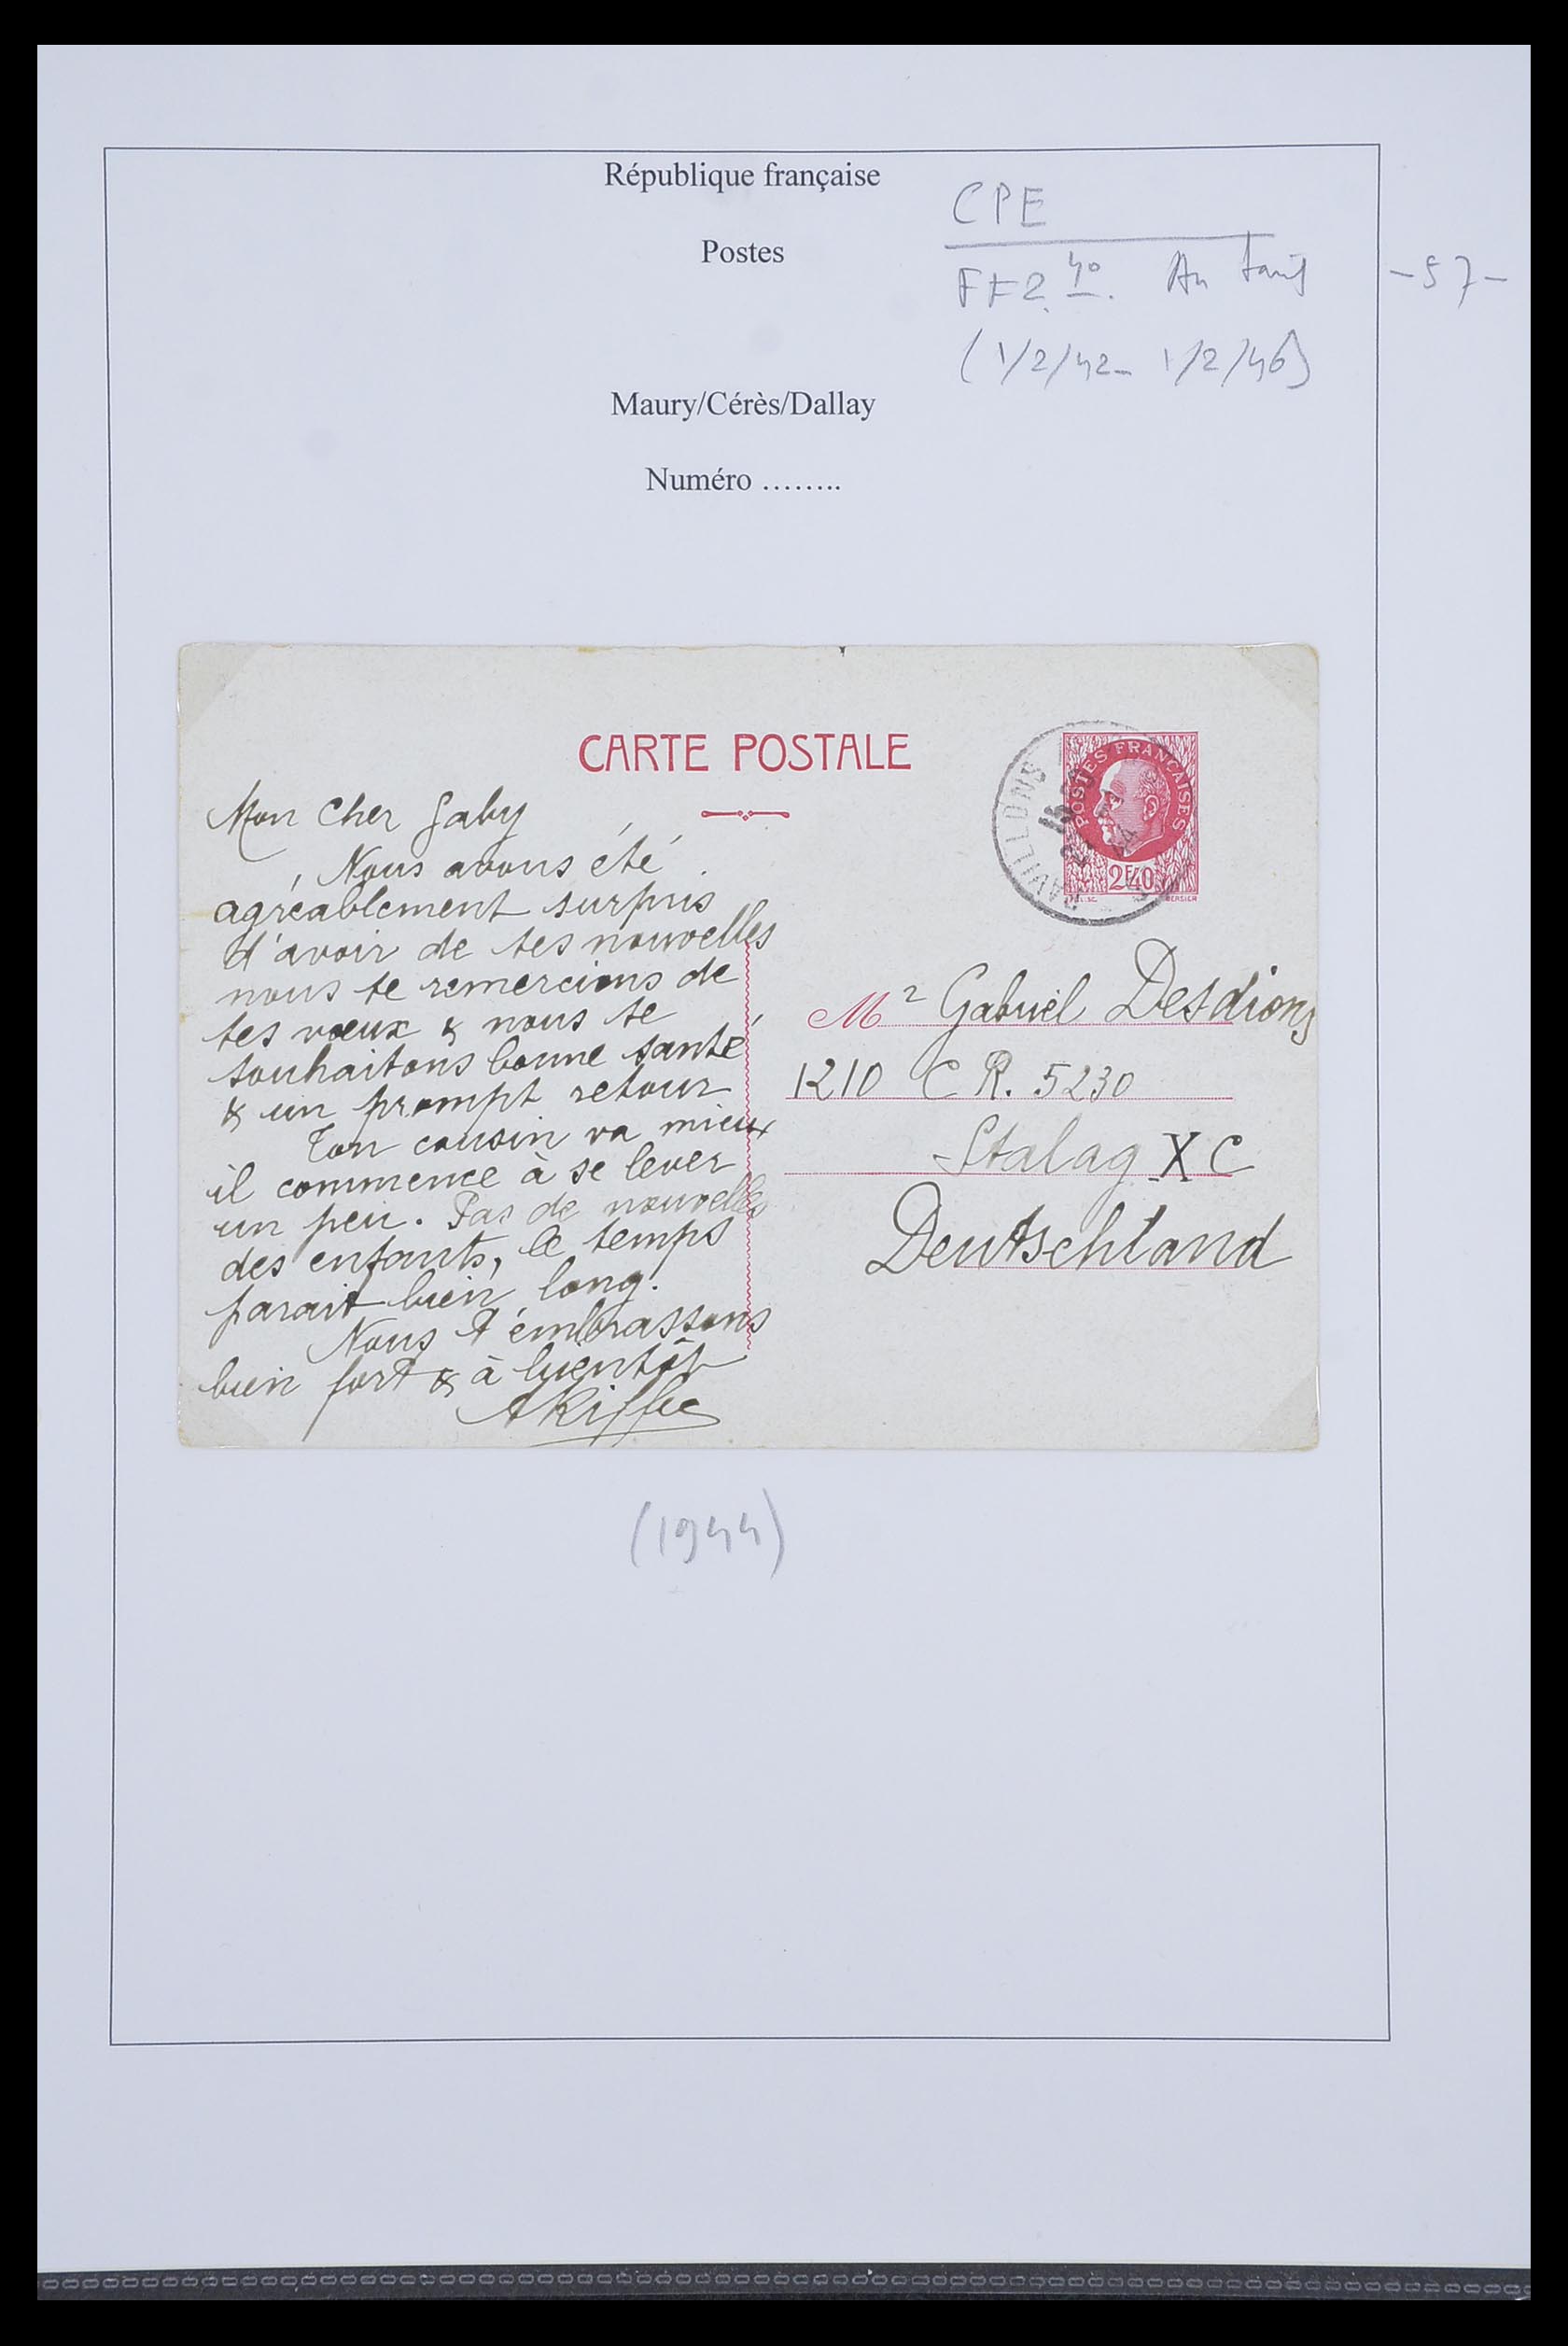 République française
CPE
Postes
FF 2.40. Au tarif
-57-
(1/2/42 - 1/2/46)
Maury/Cérès/Dallay
Numéro ........
CARTE POSTALE
PAVILLONS
POSTES FRANÇAISES
2F40
BERSIER
Mon Cher Gaby
Nous avons été
agréablement surpris
d'avoir de tes nouvelles
nous te remercions de
tes vœux & nous te
souhaitons bonne santé
& un prompt retour
Ton cousin va mieux
il commence à se lever
un peu. Pas de nouvelles
des enfants, le temps
parait bien long.
Nous t'embrassons
bien fort & à bientôt
Mr Gabriel Desdions
1210 C R. 5230
Stalag X C
Deutschland
(1944)